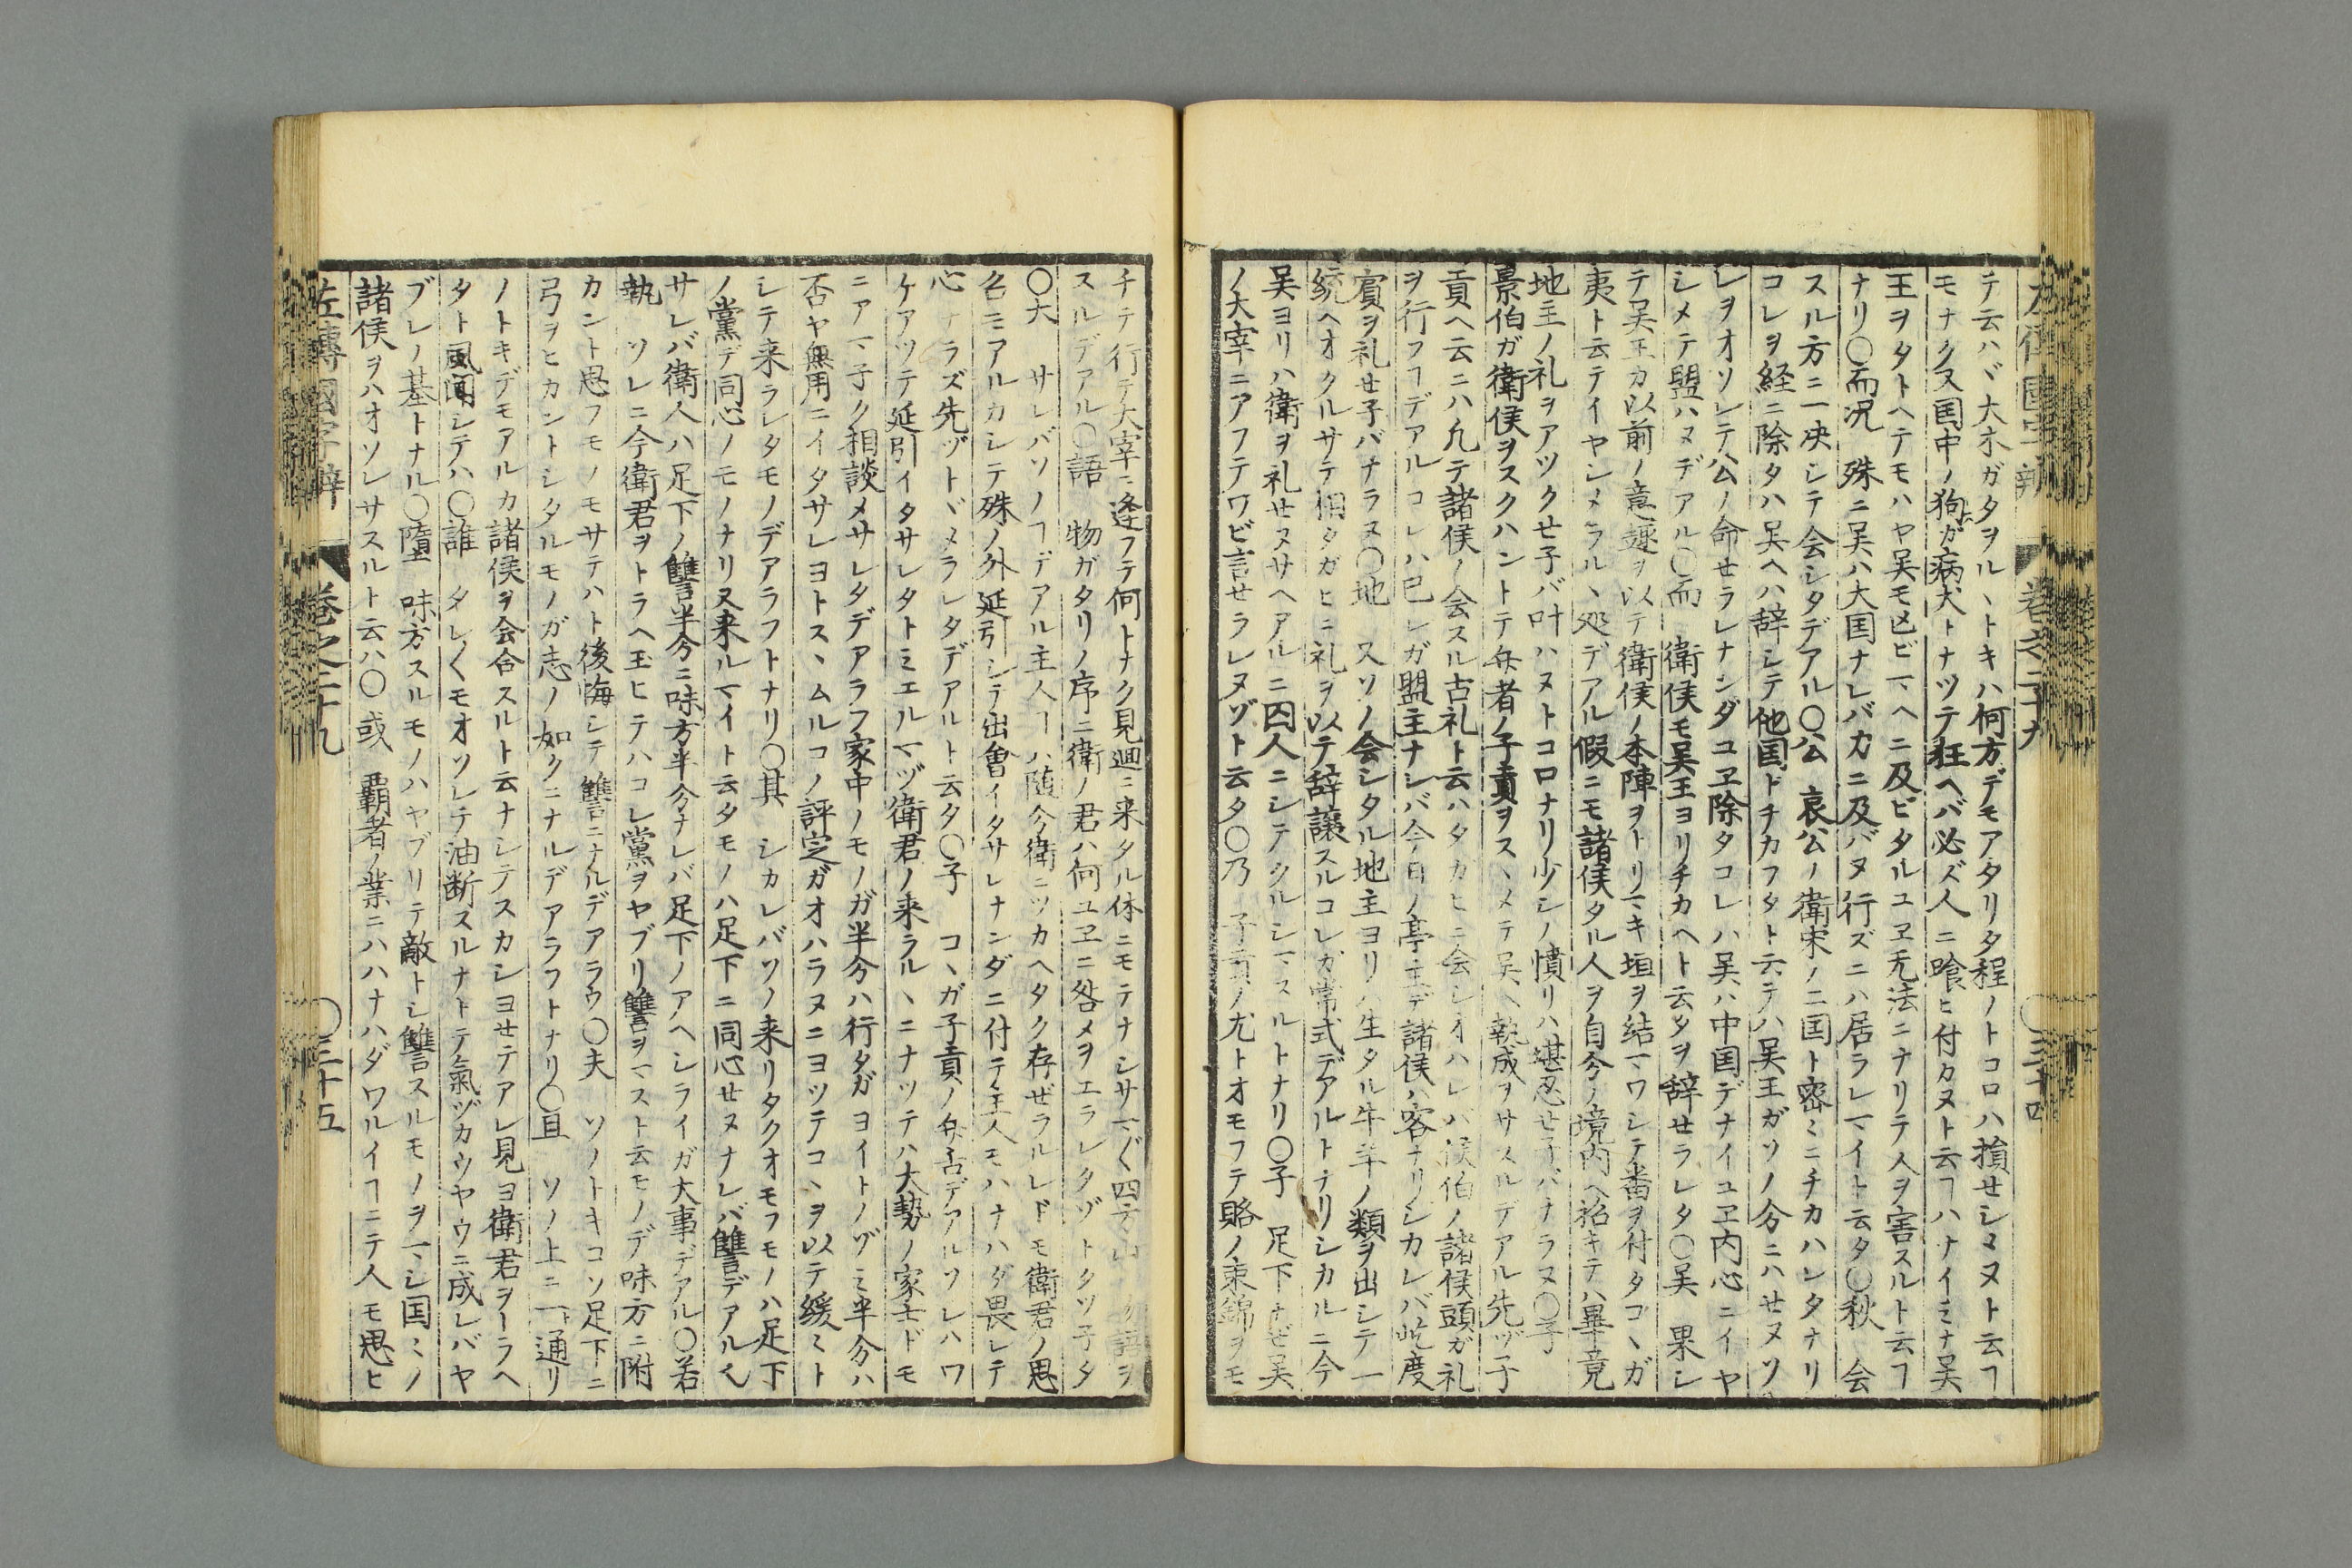 左傳國字辯 巻之二十九 〇三十四
テ云ハヾ大木ガタヲルヽトキハ何方デモアタリタ程ノトコロハ損セシマヌト云ヿ
モナク又国中ノ狗ガ病犬トナツテ狂ヘバ必ズ人ニ喰ヒ付カヌト云ヿハナイミナ呉
王ヲタトヘテモハヤ呉モ亡ビマヘニ及ビタルユヱ无法ニナリテ人ヲ害スルト云ヿ
ナリ〇而况 殊ニ呉ハ大国ナレバ力ニ及バヌ行ズニハ居ラレマイト云タ〇秋 会
スル方ニ一决シテ会シタデアル〇公 哀公ノ衛宋ノ二国ト密ミニチカハレタナリ
コレヲ経ニ除タハ呉ヘハ辞シテ他国ドチカフタト云テハ呉王ガソノ分ニハセヌソ
レヲオソレテ公ノ命セラレナンダユヱ除タコレハ呉ハ中国デナイユヱ内心ニイヤ
シメテ盟ハヌデアル〇而 衛侯モ呉王ヨリチカヘト云タヲ辞セラレタ〇呉 果シ
テ呉王カ以前ノ意趣ヲ以テ衛侯ノ本陣ヲトリマキ垣ヲ結マワシテ番ヲ付タコヽガ
夷ト云テイヤシメラルヽ处デアル假ニモ諸侯タル人ヲ自分ノ境内ヘ招キテハ畢竟
地主ノ礼ヲアツクセ子バ叶ハヌトコロナリ少シノ憤リハ堪忍セ子バナラヌ〇子
景伯ガ衛侯ヲスクハントテ弁者ノ子貢ヲスヽメテ呉ヘ執成ヲサスルデアル先ヅ子
貢ヘ云ニハ凢テ諸侯ノ会スル古礼ト云ハタガヒニ会シオハレバ侯伯ノ諸侯頭ガ礼
ヲ行フヿデアルコレハ已レガ盟主ナレバ今日ノ亭主デ諸侯ハ客ナリシカレバ屹度
賓ヲ礼セ子バナラヌ〇地 又ソノ会シタル地主ヨリハ生タル牛羊ノ類ヲ出シテ一
統ヘオクルサテ相タガヒニ礼ヲ以テ辞譲スルコレガ常式デアルトナリシカルニ今
呉ヨリハ衛ヲ礼セヌサヘアルニ囚人ニシテクルシマスルトナリ〇子 足下ナゼ呉
ノ大宰ニアフテワビ言セラレヌゾト云タ〇乃 子貢ノ尤トオモフテ賂ノ束錦ヲモ
チテ行テ大宰ニ逢フテ何トナク見廻ニ来タル体ニモテナシサマ〲四方山ノ物語ヲ
スルデアル〇語 物ガタリノ序ニ衛ノ君ハ何ユヱニ咎メヲエラレタゾトタツ子タ
〇大 サレバソノヿデアル主人ーハ随分衛ニツカヘタク存ゼラルレドモ衛君ノ思
召モアルカシテ殊ノ外延引シテ出會イタサレナンダニ付テ主人モハナハダ畏レテ
心ナラズ先ヅトヾメラレタデアルト云タ〇子 コヽガ子貢ノ弁舌デアルソレハワ
ケアツテ延引イタサレタトミエルマヅ衛君ノ来ラルヽニナツテハ大勢ノ家士ドモ
ニアマ子ク相談メサレタデアラフ家中ノモノガ半分ハ行タガヨイトノゾミ半分ハ
否ヤ無用ニイタサレヨトスヽムルコノ評定ガオハラヌニヨツテコヽヲ以テ緩ミト
シテ来ラレタモノデアラフトナリ〇其 シカレバソノ来リタクオモフモノハ足下
ノ黨デ同心ノモノナリ又来ルマイト云タモノハ足下ニ同心セヌナレバ讐デアル〻
サレバ衛人ハ足下ノ讐半分ニ味方半分ナレバ足下ノアヘシライガ大事デアル〇若
執 ソレニ今衛君ヲトラヘ玉ヒテハコレ黨ヲヤブリ讐ヲマスト云モノデ味方ニ附
カント思フモノモサテハト後海シテ讐ニナルデアラウ〇夫 ソノトキコソ足下ニ
弓ヲヒカントシタルモノガ志ノ如クニナルデアラフトナリ〇且 ソノ上ニ一ト通リ
ノトキデモアルカ諸侯ヲ会合スルト云ナシテスカシヨセテアレ見ヨ衛君ヲーラヘ
タト風聞シテハ〇誰 タレ〱モオソレテ油断スルナトテ氣ヅカウヤウニ成レバヤ
ブレノ基トナル〇墮 味方スルモノハヤブリテ敵トシ讐スルモノヲマシ国ミノ
諸侯ヲハオソレサスルト云ハ〇或 覇者ノ業ニハハナハダワルイヿニテ人モ思ヒ
左傳國字辯 巻之二十九 〇三十五